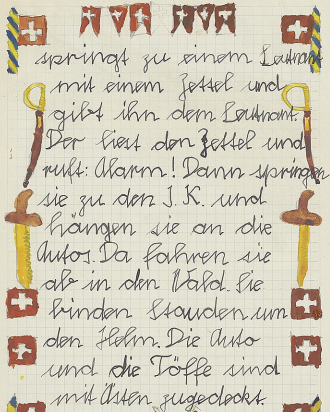 springt zu einem Leutnant
mit einem Zettel und
gibt ihn dem Leutnant.
Der liest den Zettel und
ruft: Alarm! Dann springen
sie zu den I. K. und
hängen sie an die
Autos. Da fahren sie
ab in den Wald. Sie
binden Stauden um
den Helm. Die Auto
und die Töffe sind
mit Ästen zugedeckt.